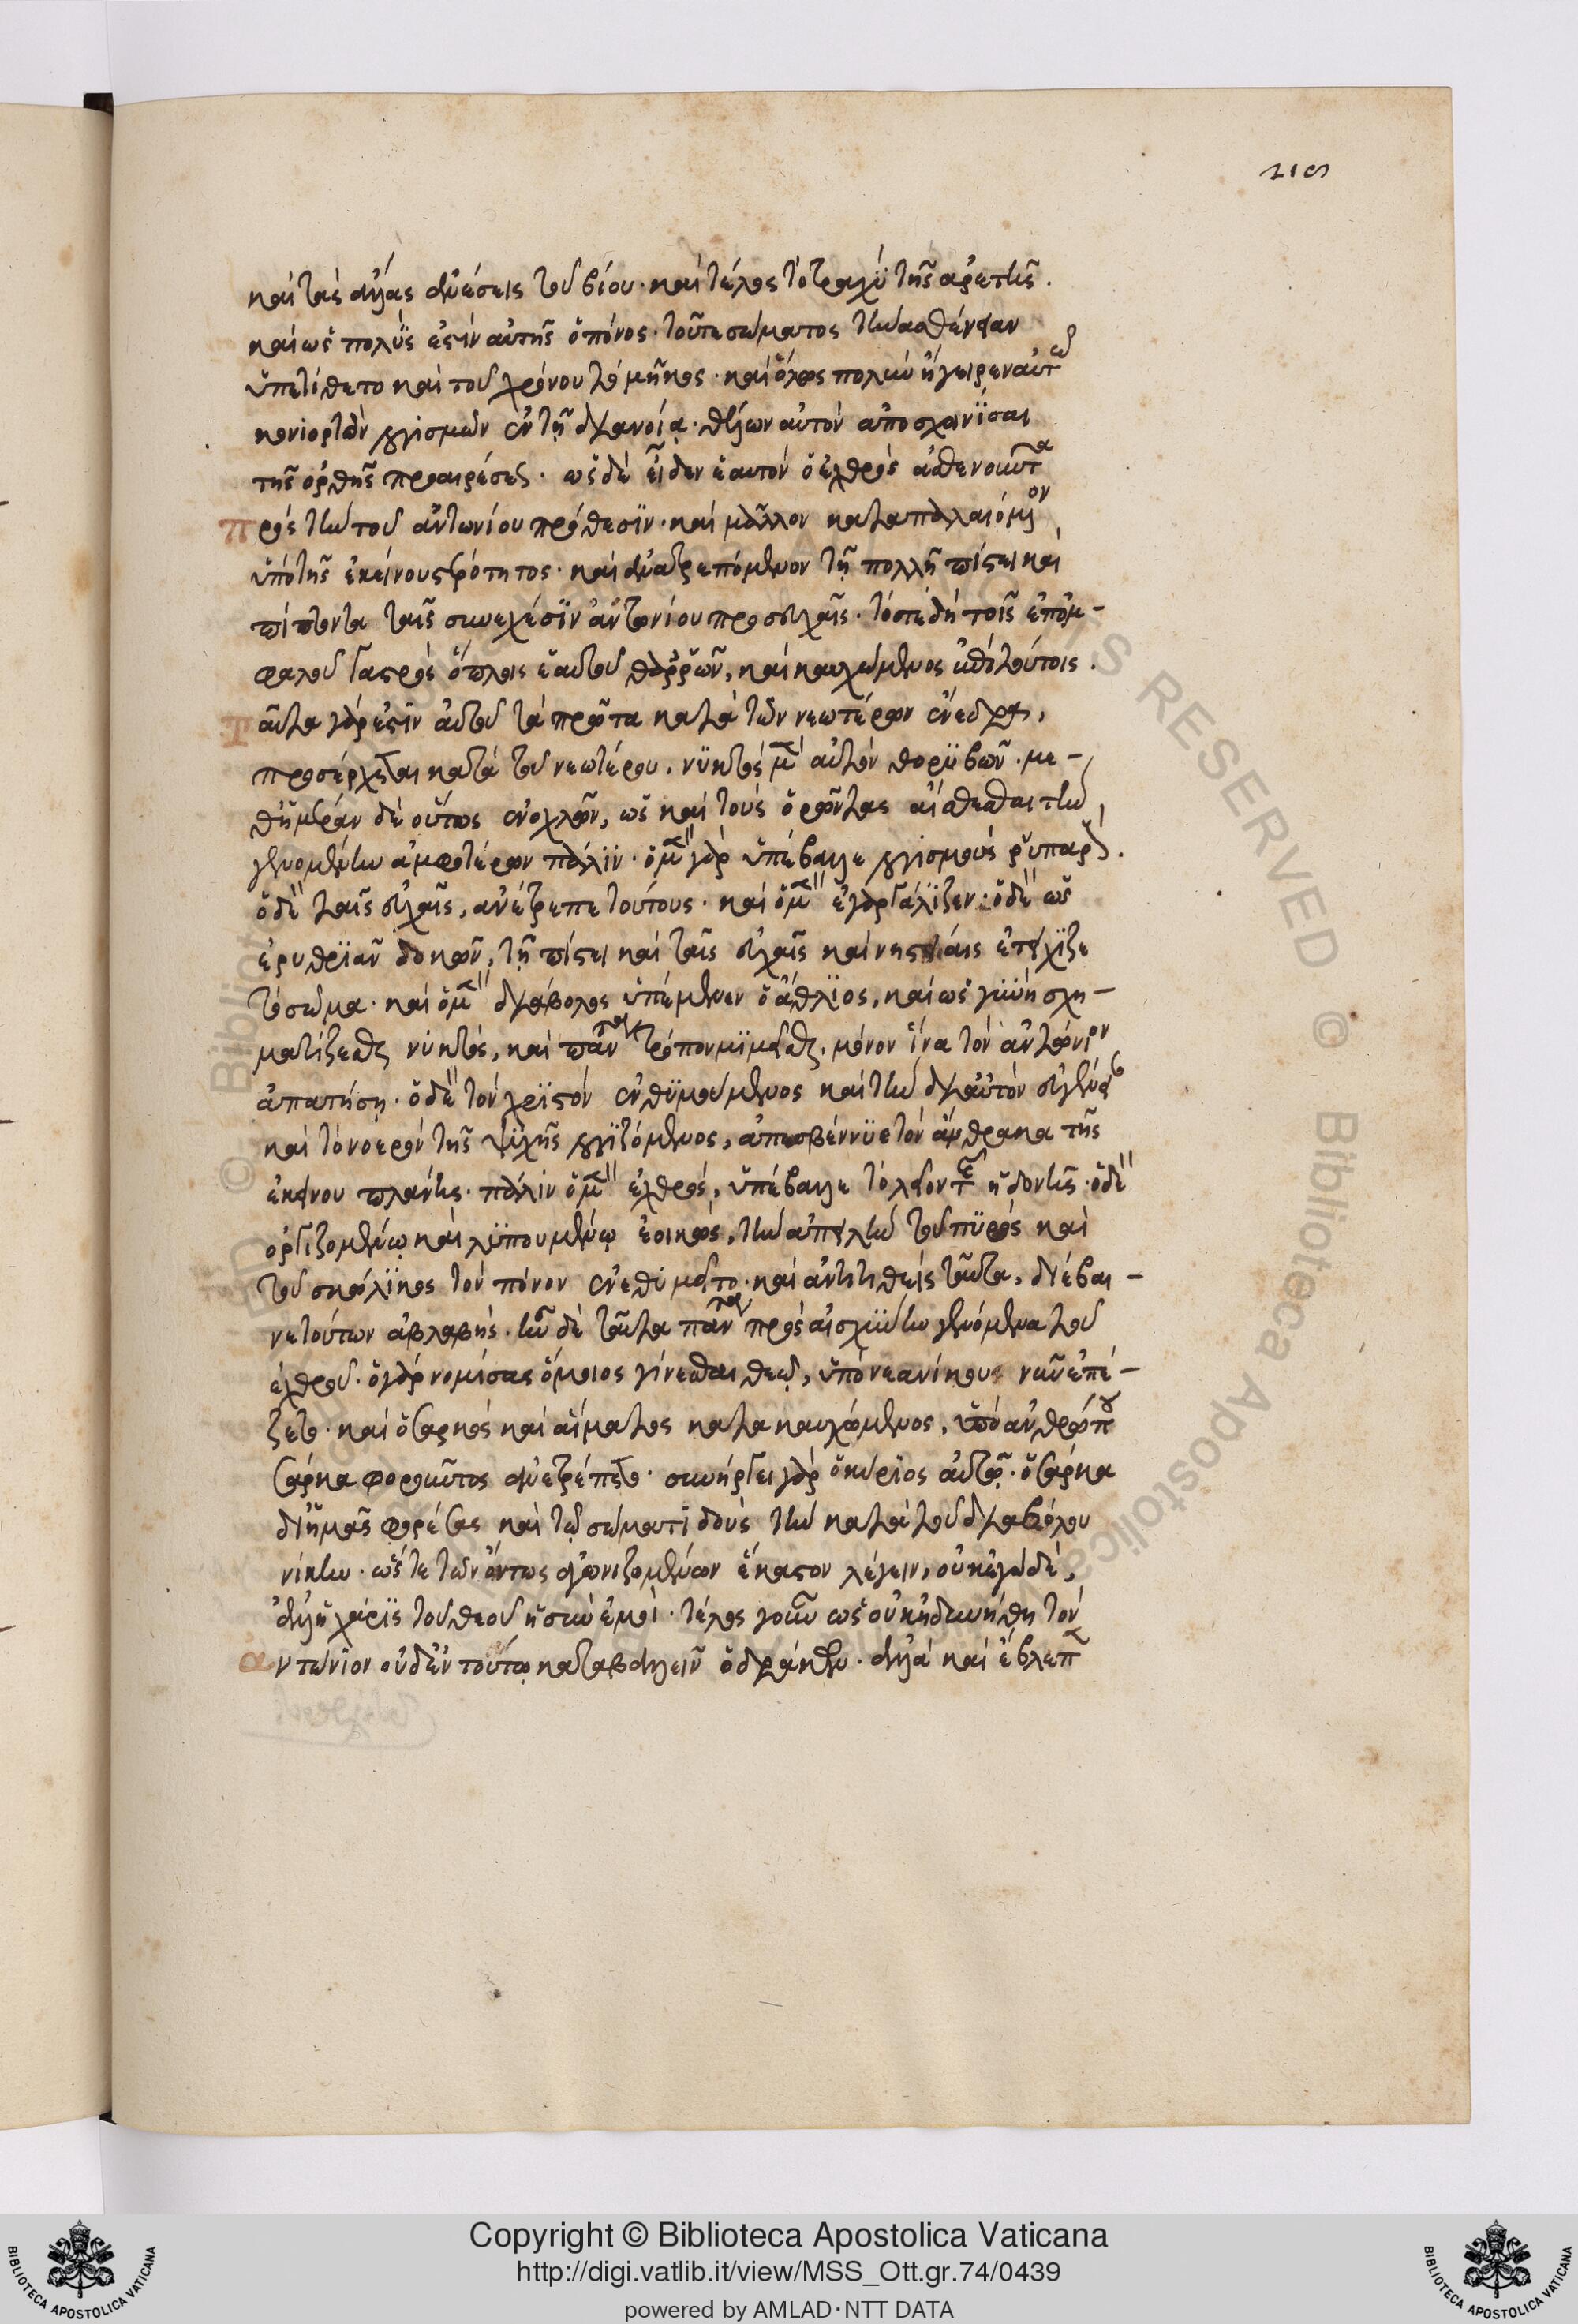 216
καὶ τὰς ἄλλας ἀνέσεις τοῦ βίου· καὶ τέλος τὸ τραχὺ τῆς ἀρετῆς.
καὶ ὡς πολύς ἐστὶν αὐτῆς ὁ πόνος· τοῦτε σώματος τὴν ἀσθένειαν
ὑπετίθετο καὶ τοῦ χρόνου τὸ μῆκος· καὶ ὅλως πολὺν ἤγειρεν αὐτῶ
κονιορτὸν λογισμῶν ἐν τῇ διανοίᾳ· θέλων αὐτὸν ἀποσχοινίσαι
τῆς ὀρθῆς προαιρέσεως· ὡς δὲ εἶδεν ἑαυτὸν ὁ ἐχθρὸς ἀσθενοῦντα
πρὸς τὴν τοῦ ἀντωνίου πρόθεσιν· καὶ μᾶλλον καταπαλαιόμενον
ὑπὸ τῆς ἐκείνου στερρότητος· καὶ ἀνατρεπόμενον τῇ πολλῇ πίστει καὶ
πίπτοντα ταῖς συνεχέσιν ἀντωνίου προσευχαῖς· τότε δὴ τοῖς ἐπ' ὀμ-
φαλοῦ γαστρὸς ὅπλοις ἑαυτοῦ θαρρῶν, καὶ καυχώμενος ἐπὶ τούτοις.
ταῦτα γάρ ἐστιν αὐτοῦ τὰ πρῶτα κατὰ τῶν νεωτέρων ἔνεδρα,
προσέρχεται κατὰ τοῦ νεωτέρου, νυκτὸς μὲν αὐτὸν θορυβῶν· με-
θημέραν δὲ οὕτως ἐνοχλῶν, ὡς καὶ τοὺς ὁρῶντας αἰσθέσθαι τὴν
γενομένην ἀμφοτέρων πάλην· ὁ μὲν γὰρ ὑπέβαλλε λογισμοὺς ῥυπαρούς.
ὁ δὲ ταῖς εὐχαῖς, ἀνέτρεπε τούτους· καὶ ὁ μὲν ἐγαργάλιζεν· ὁ δὲ ὡς
ἐρυθριᾶν δοκῶν, τῇ πίστει καὶ ταῖς εὐχαῖς καὶ νηστείαις ἐτείχιζε
τὸ σῶμα· καὶ ὁ μὲν διάβολος ὑπέμενεν ὁ ἄθλιος, καὶ ὡς γυνὴ σχη-
ματίζεσθαι νυκτὸς, καὶ πάντα τρόπον μιμεῖσθαι, μόνον ἵνα τὸν ἀντώνιον
ἀπατήσῃ· ὁ δὲ τὸν χριστὸν ἐνθυμούμενος καὶ τὴν δι' αὐτὸν εὐγένειαν
καὶ τὸ νοερὸν τῆς ψυχῆς λογιζόμενος, ἀπεσβέννυε τὸν ἄνθρακα τῆς
ἐκείνου πλάνης· πάλιν ὁ μὲν ἐχθρὸς, ὑπέβαλλε τὸ λεῖον τῆς ἡδονῆς· ὁ δὲ
ὀργιζομένῳ καὶ λυπουμένῳ ἐοικὼς, τὴν ἀπειλὴν τοῦ πυρὸς καὶ
τοῦ σκώληκος τὸν πόνον ἐνεθυμεῖτο· καὶ ἀντιτιθεὶς ταῦτα, διέβαι-
νε τούτων ἀβλαβής· ἦν δὲ ταῦτα πάντα πρὸς αἰσχύνην γενόμενα τοῦ
ἐχθροῦ· ὁ γὰρ νομίσας ὅμοιος γίνεσθαι θεῷ, ὑπὸ νεανίσκου νῦν ἐπέ-
ζετο· καὶ ὁ σαρκὸς καὶ αἵματος κατακαυχώμενος, ὑπὸ ἀνθρώπου
σάρκα φοροῦντος ἀνετρέπετο· συνήργει γὰρ ὁ κύριος αὐτῷ· ὁ σάρκα
δι' ἡμᾶς φορέσας καὶ τῷ σώματι δοὺς τὴν κατὰ τοῦ διαβόλου
νίκην· ὥστε τῶν ὄντως ἀγωνιζομένων ἕκαστον λέγειν, οὐκ ἐγὼ δὲ,
ἀλλ' ἡ χάρις τοῦ θεοῦ ἡ σὺν ἐμοί· τέλος γοῦν ὡς οὐκ ἠδυνήθη τὸν
ἀντώνιον οὐδ' ἐν τούτῳ καταβαλεῖν ὁ δράκων· ἀλλὰ καὶ ἔβλεπεν
Copyright © Biblioteca Apostolica Vaticana
http://digi.vatlib.it/view/MSS_Ott.gr.74/0439
powered by AMLAD·NTT DATA